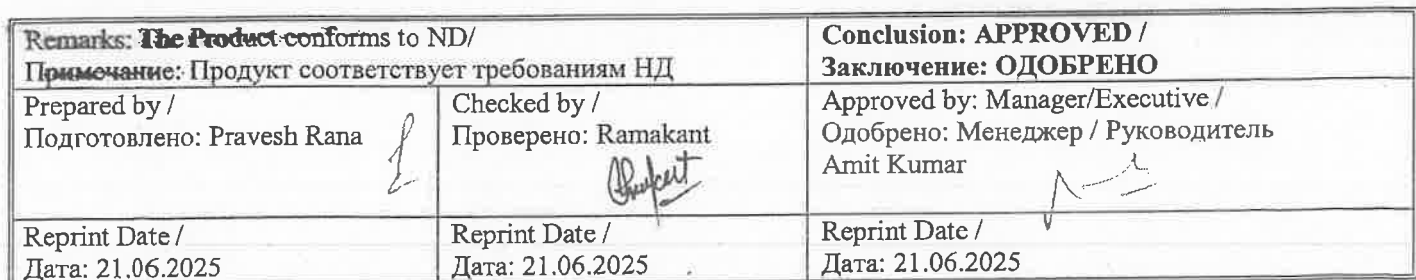 Remarks: The Product conforms to ND/
Примечание: Продукт соответствует требованиям НД
Conclusion: APPROVED /
Заключение: ОДОБРЕНО
Prepared by /
Подготовлено: Pravesh Rana
Checked by /
Проверено: Ramakant
Approved by: Manager/Executive /
Одобрено: Менеджер / Руководитель
Amit Kumar
Reprint Date /
Дата: 21.06.2025
Reprint Date /
Дата: 21.06.2025
Reprint Date /
Дата: 21.06.2025